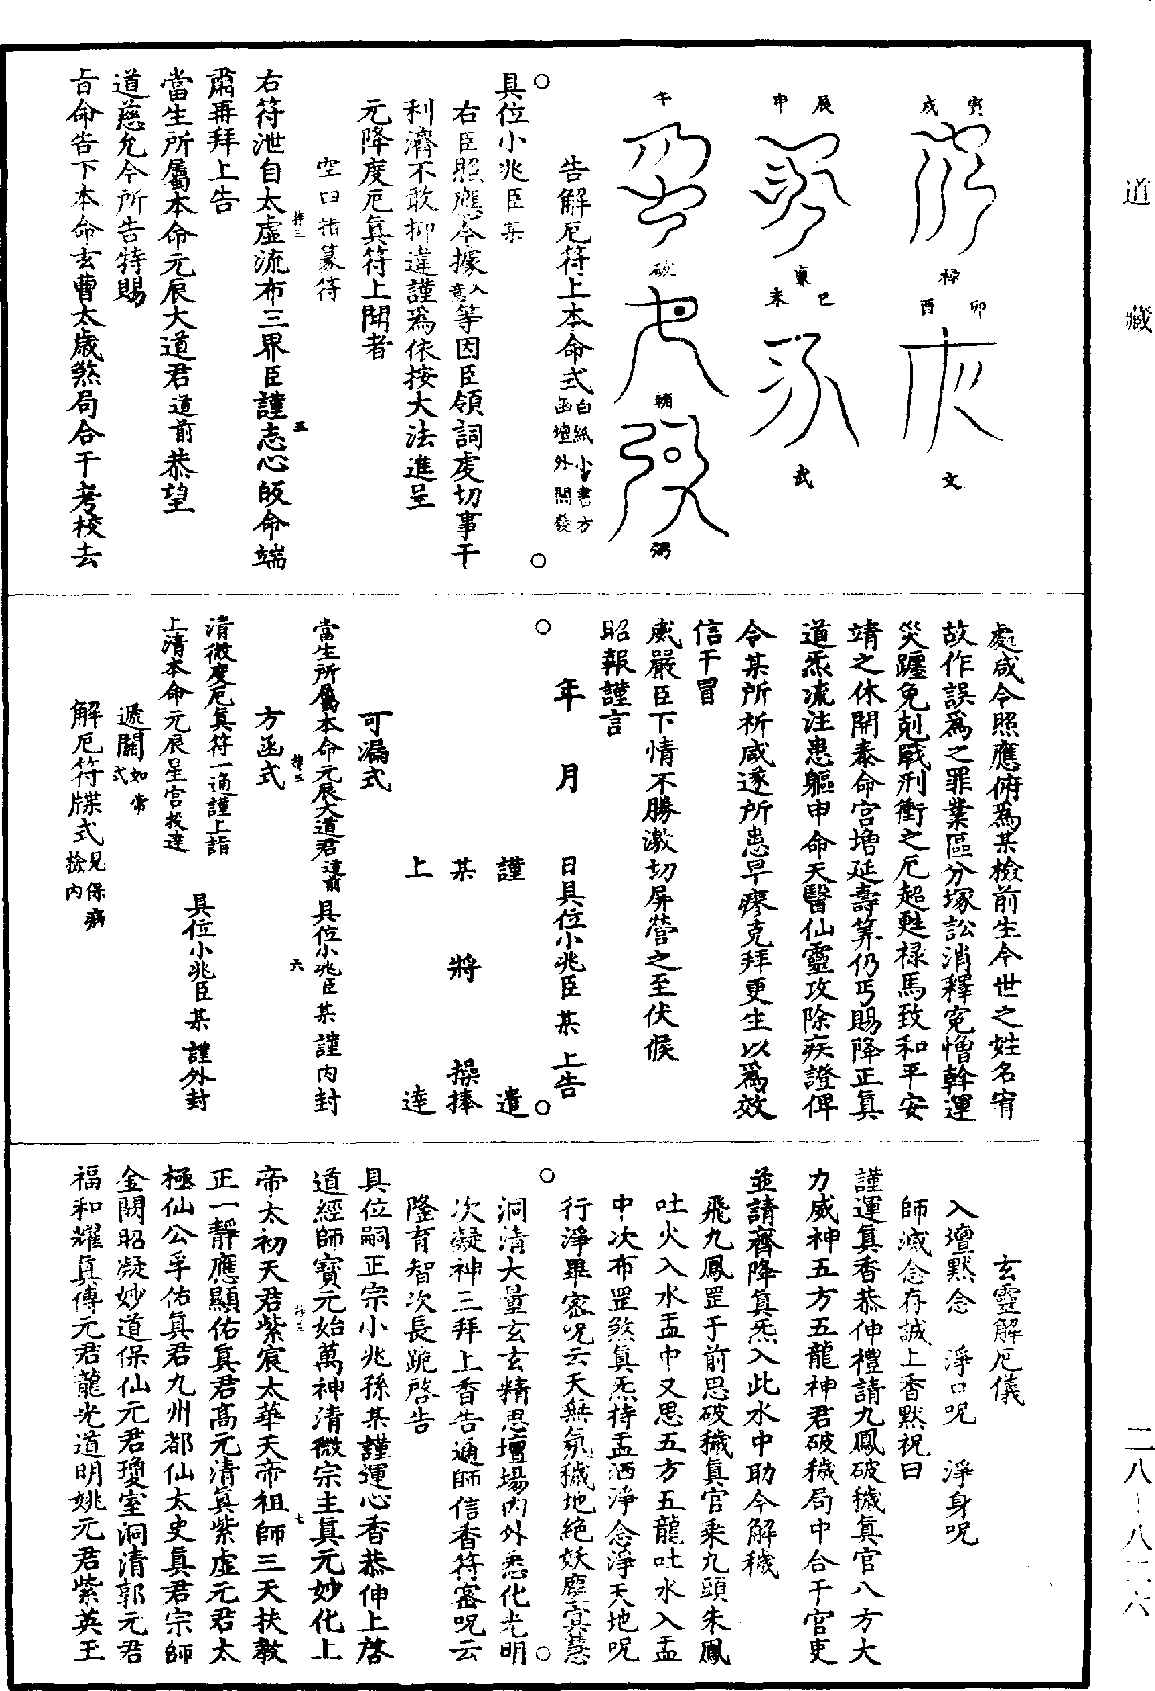 道藏
寅
戌
卯
酉
文
辰
申
巳
未
武
午
破
輔
弼
告解厄符上本命式白紙小書方函壇外關發
具位小兆臣某
右臣照應今據入意等因臣領詞虔切事干
利濟不敢抑違謹為依按大法進呈
元降度厄真符上聞者
空日措篆符
右符泄自太虛流布三界臣謹志心皈命端
肅再拜上告
當生所屬本命元辰大道君道前恭望
道慈允今所告特賜
旨命告下本命玄曹太歲煞局合干考校去
處咸令照應俯為某檢前生今世之姓名宥
故作誤為之罪業區分塚訟消釋冤憎斡運
災躔免剋戰刑衝之厄超甦祿馬致和平安
靖之休開泰命宮增延壽筭仍丐賜降正真
道炁流注患軀申命天醫仙靈攻除疾證俾
令某所祈咸遂所患早瘳克拜更生以為效
信干冒
威嚴臣下情不勝激切屏營之至伏候
昭報謹言
年月日具位小兆臣某上告
謹遣
某將操捧
上達
可漏式
當生所屬本命元辰大道君道前具位小兆臣某謹內封
方函式
清微度厄真符一通謹上詣
上清本命元辰星宮投達具位小兆臣某謹外封
遞關如常式
解厄符牒式見保病檢內
玄靈解厄儀
入壇默念淨口呪淨身呪
師滅念存誠上香默祝曰
謹運真香恭伸禮請九鳳破穢真官八方大
力威神五方五龍神君破穢局中合干官吏
並請齊降真炁入此水中助今解穢
飛九鳳罡于前思破穢真官乘九頭朱鳳
吐火入水盂中又思五方五龍吐水入盂
中次布罡煞真炁持盂洒淨念淨天地呪
行淨畢密呪云天無氛穢地絕妖塵冥慧
洞清大量玄玄精思壇場內外悉化光明
次凝神三拜上香告通師信香符密呪云
隆育智次長跪啓告
具位嗣正宗小兆孫某謹運心香恭伸上啓
道經師寶元始萬神清微宗主真元妙化上
帝太初天君紫宸太華天帝祖師三天扶教
正一靜應顯佑真君高元清真紫虛元君太
極仙公孚佑真君九州都仙太史真君宗師
金闕昭凝妙道保仙元君瓊室洞清郭元君
福和耀真傅元君龍光道明姚元君紫英王
二八-八一六